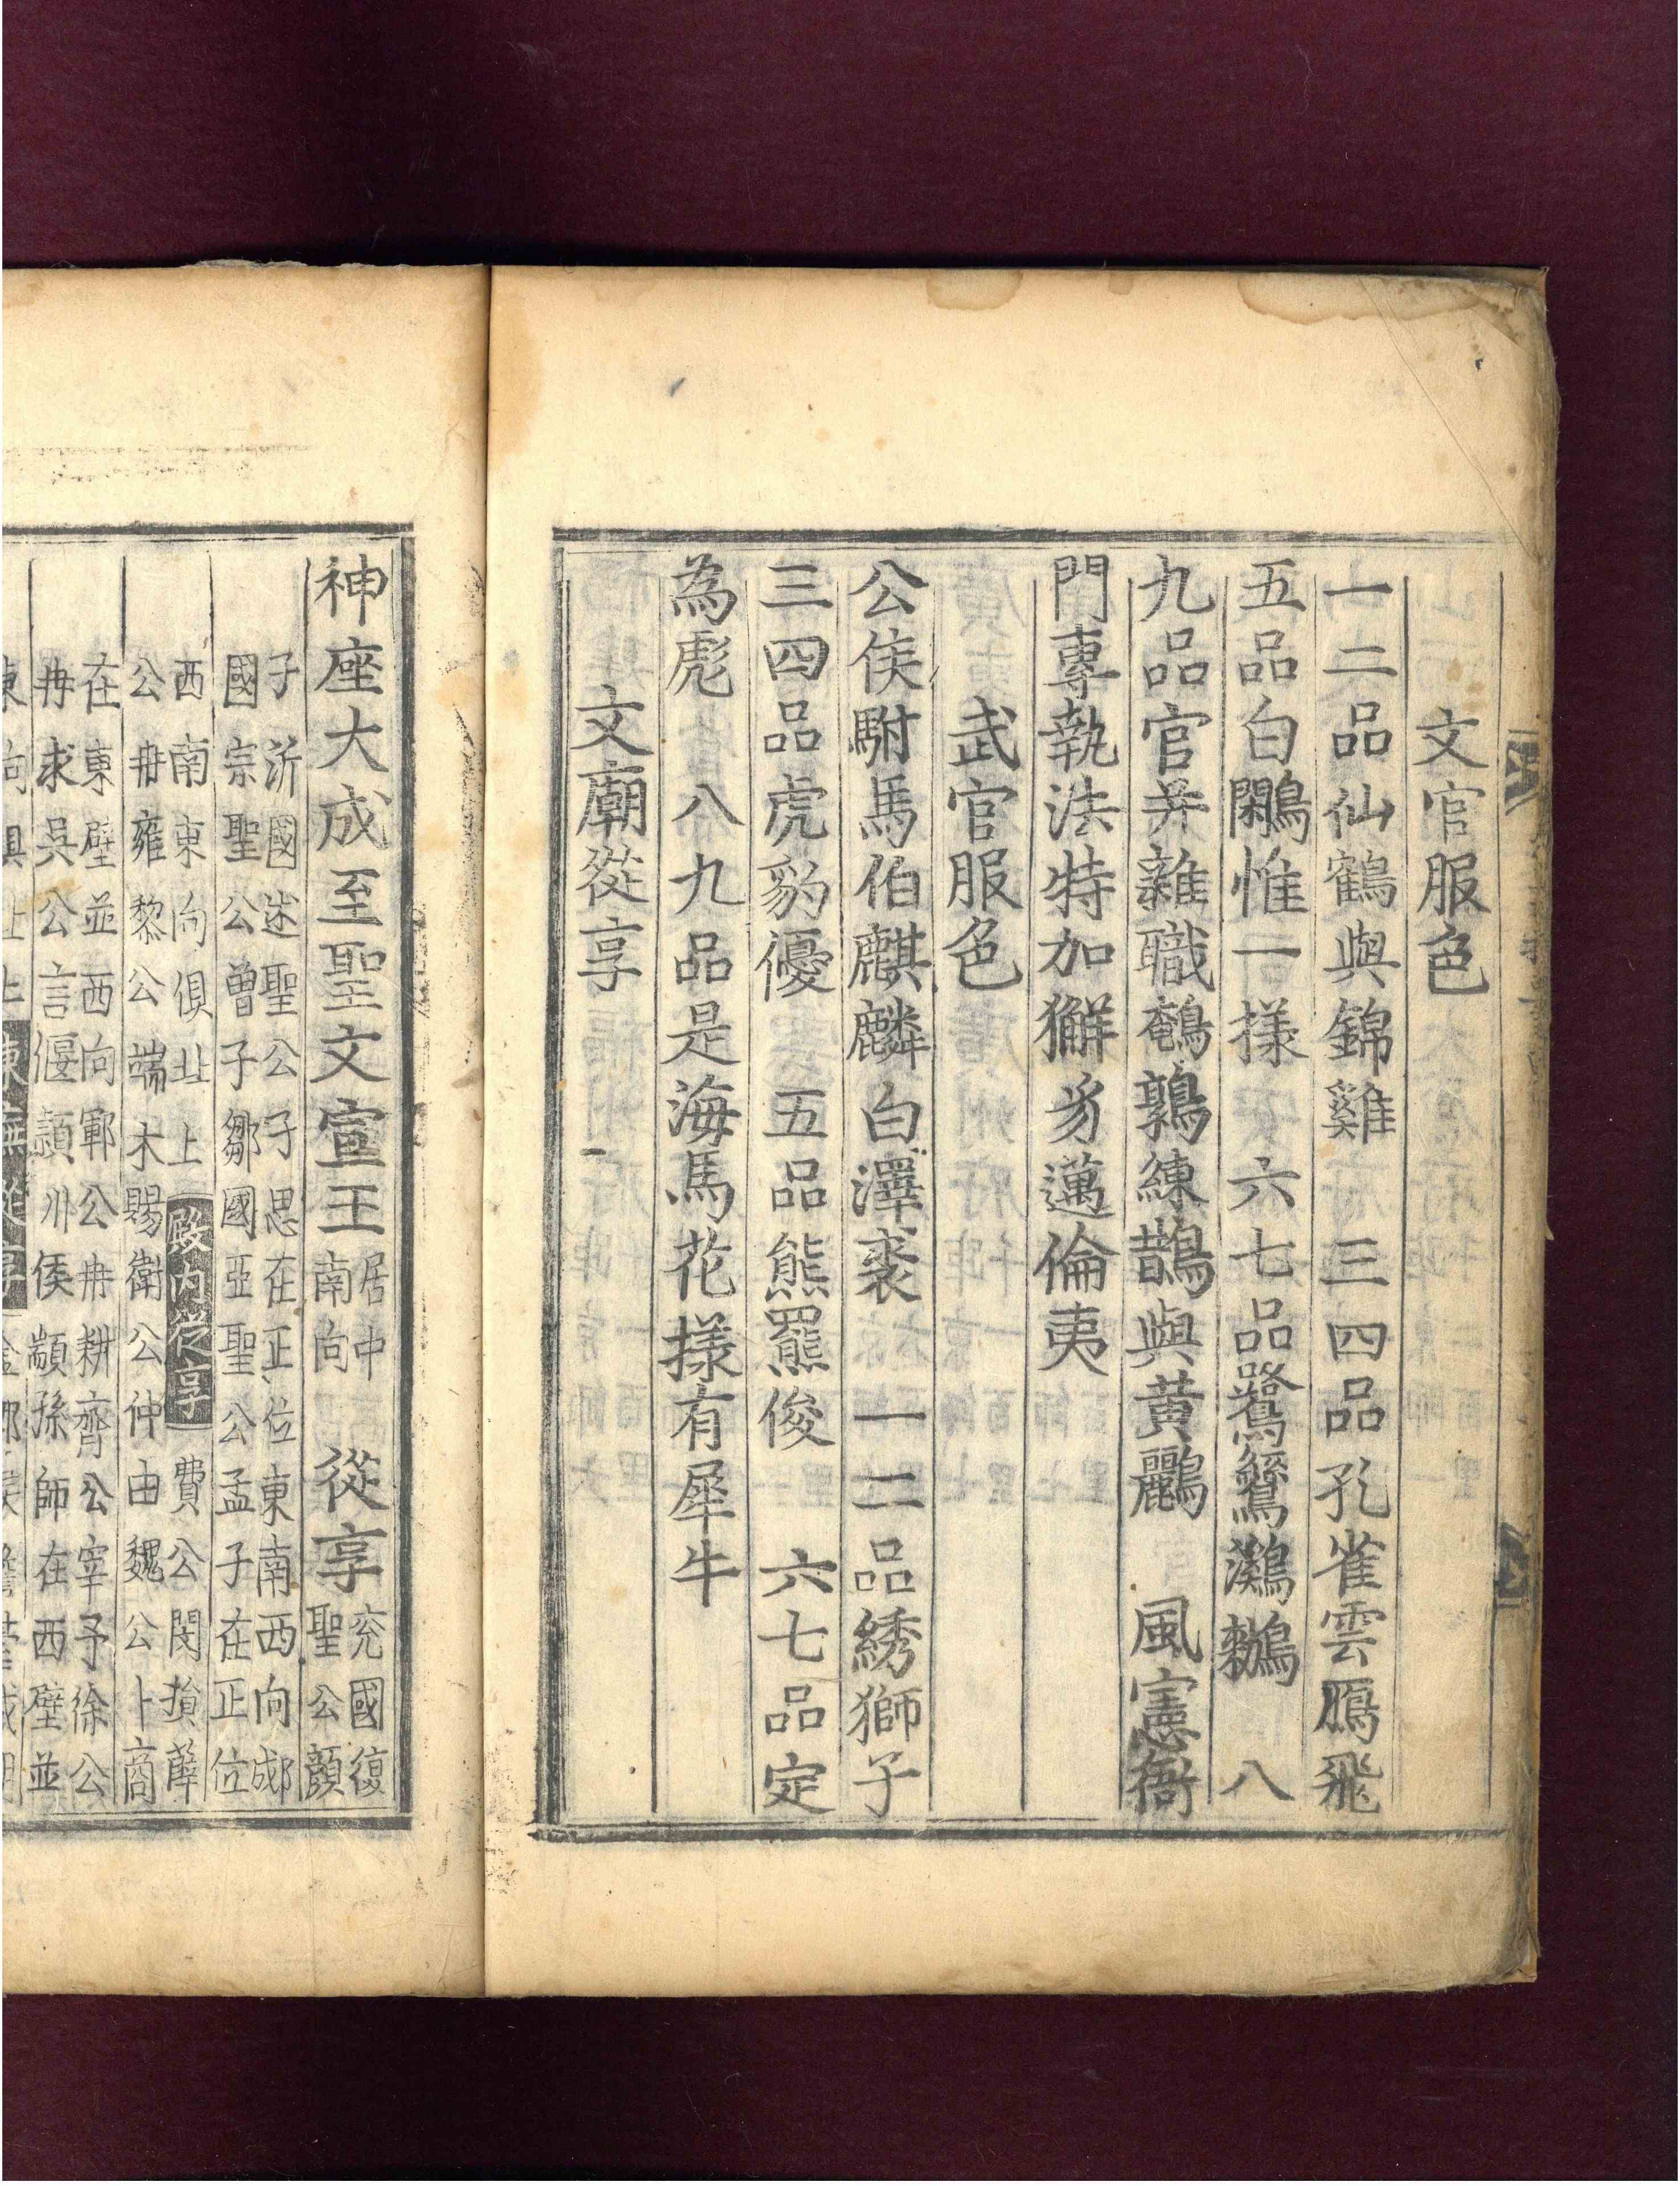 文官服色
一二品仙鶴與錦雞　三四品孔雀雲鴈飛
五品白鷴惟一樣　六七品鷺鷥鸂鶒　八
九品官并雜職鵪鶉練鵲與黃鸝　風憲衙
門專執法特加獬豸邁倫夷
武官服色
公侯駙馬伯麒麟白澤裘　一二品綉獅子
三四品虎豹優　五品熊羆俊　六七品定
為彪　八九品是海馬花樣有犀牛
文廟從享
神座大成至聖文宣王 居中
南向 從享 兖國復
聖公顏
子沂國述聖公子思在正位東南西向郕
國宗聖公曾子鄒國亞聖公孟子在正位
西南東向俱北上 殿內從享 費公閔損薛
公冉雍黎公端木賜衛公仲由魏公卜商
在東壁並西向鄆公冉耕齊公宰予徐公
冉求吳公言偃潁川侯顓孫師在西壁並